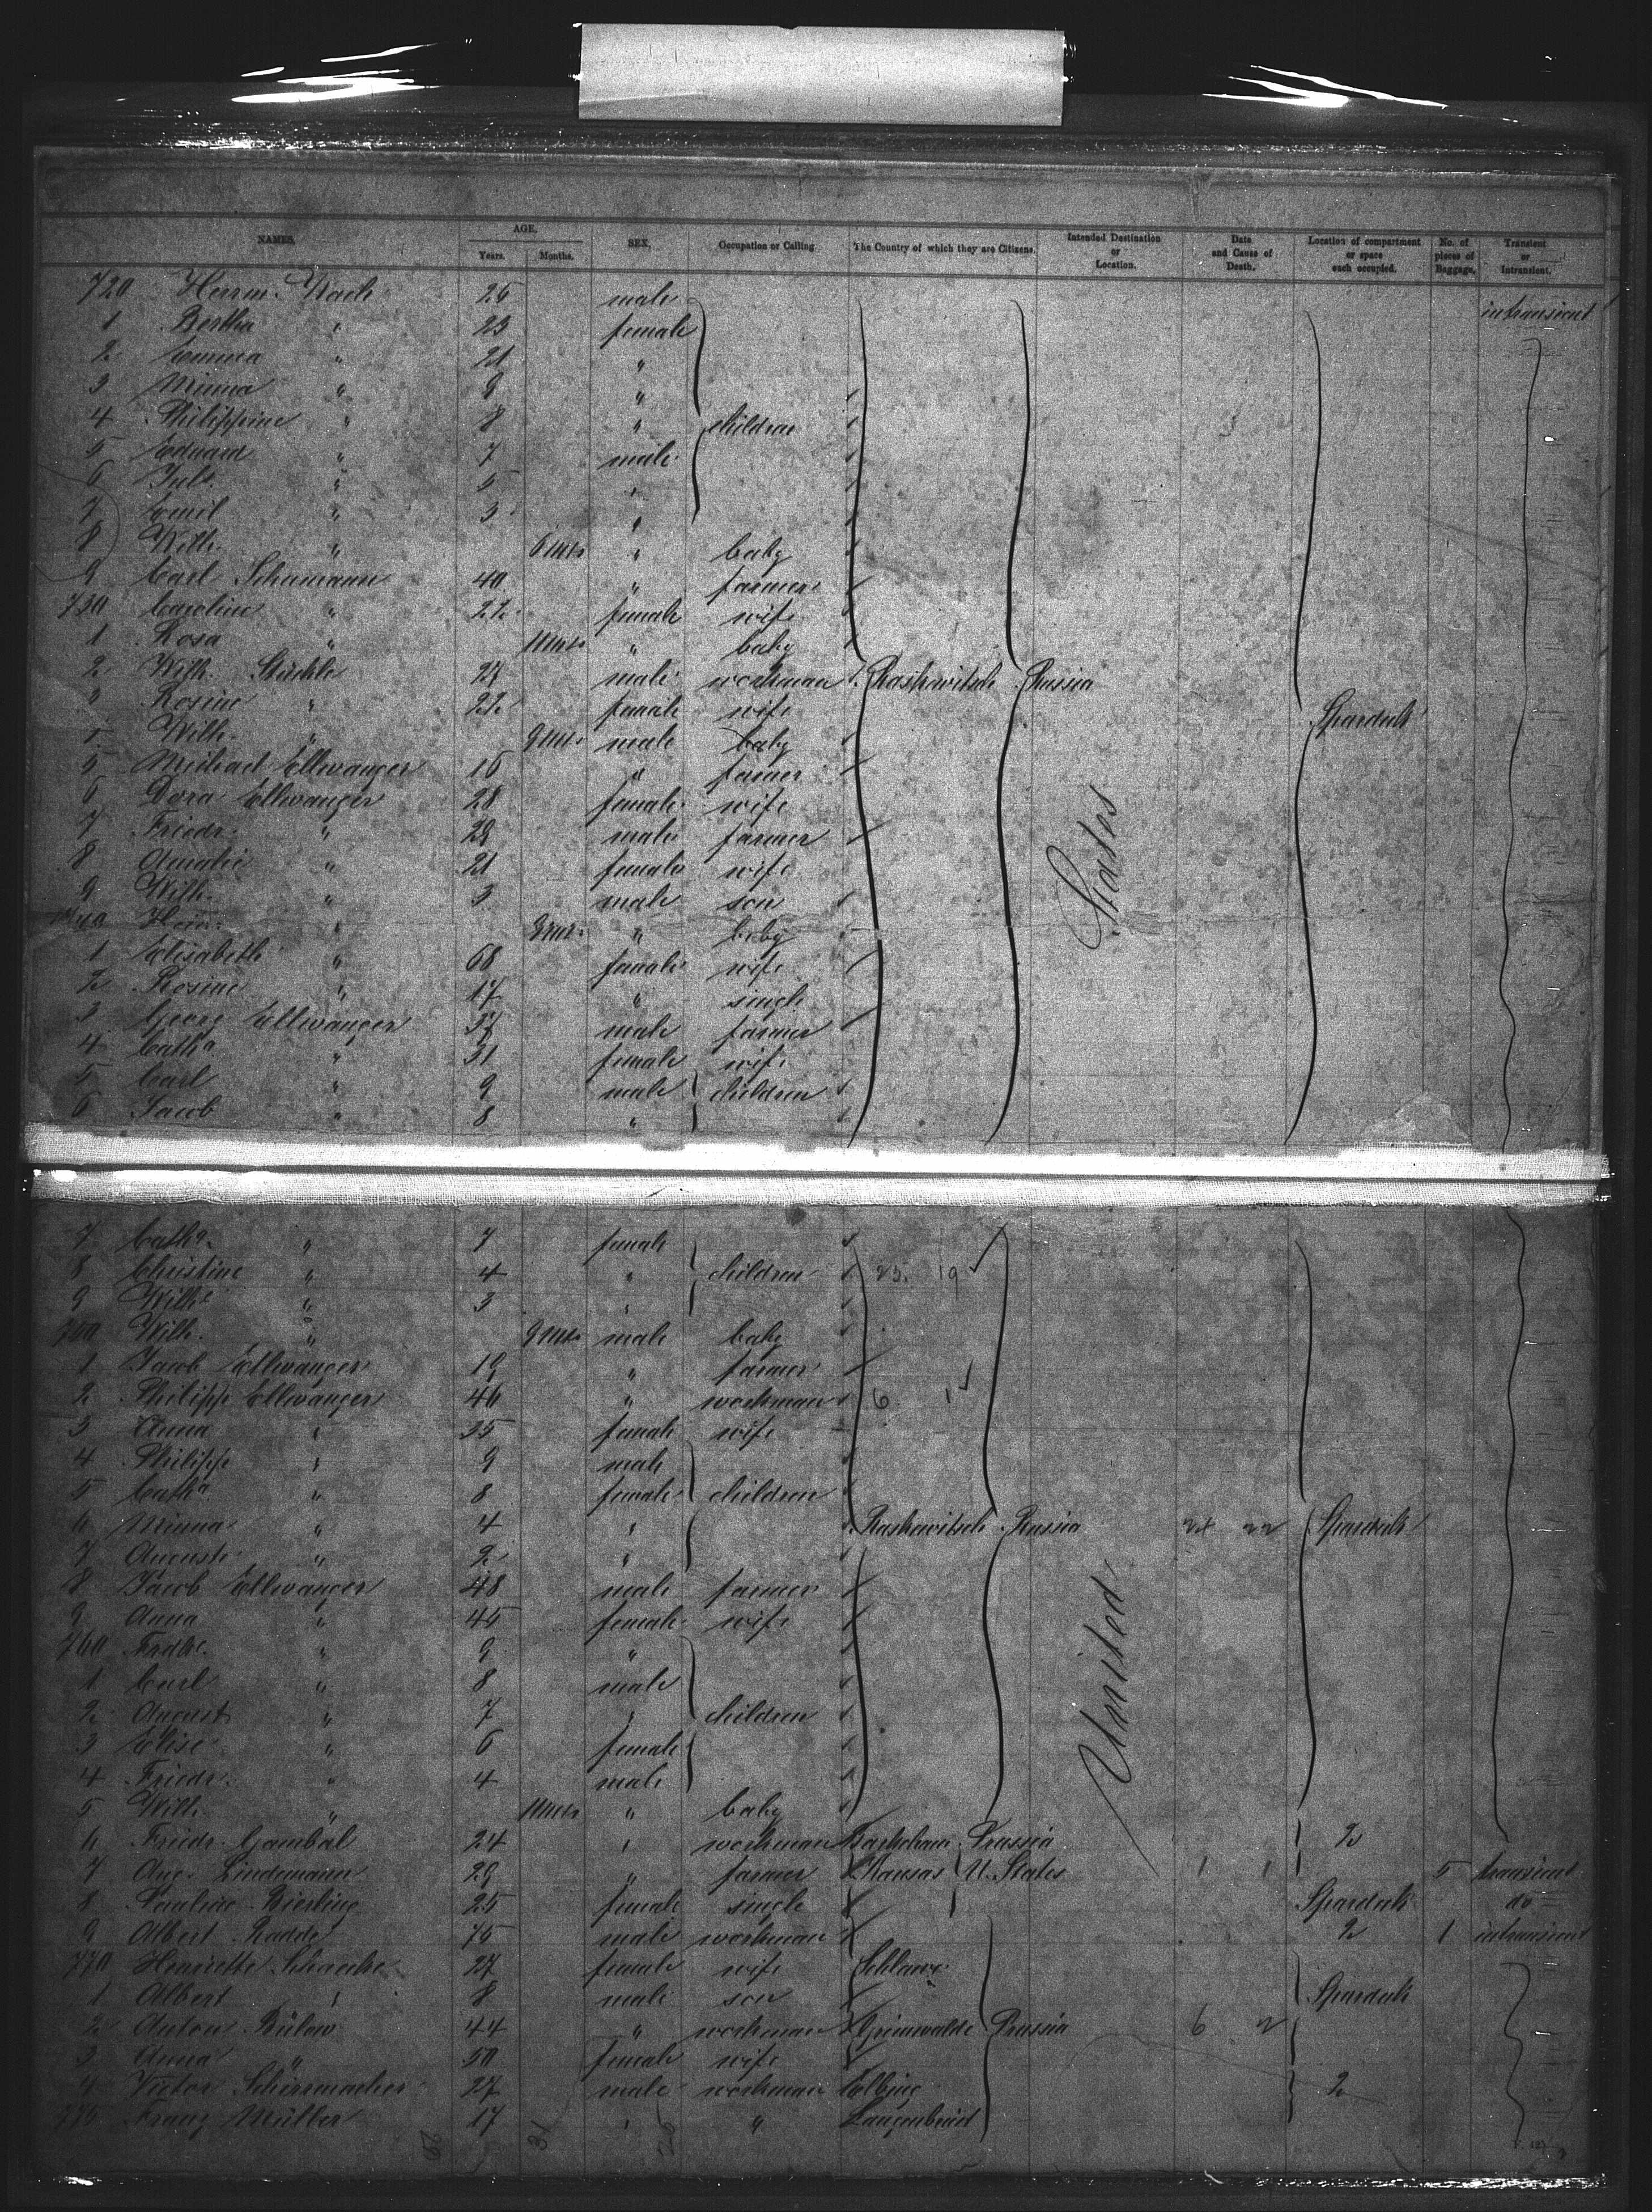 NAMES. AGE. Years. Months. SEX. Occupation or Calling. The Country of which they are Citizens. Intended Destination or Location. Date and Cause of Death. Location of compartment or space each occupied. No. of pieces of Baggage. Transient or Intransient.
720 Herrm. 26 male intransient
1 Bertha " 23 female
2 Emma " 21 "
3 Minna " 9 "
4 Philippine " 8 " children
5 Eduard " 7 male
6 Jul. " 5 "
7 Emil " 3 "
8 Wilh. " 6 mts " baby
9 Carl Schumann 40 " farmer
730 Caroline " 22 female wife
1 Rosa " 11 mts " baby
2 Wilh. Stückle 27 male workman Raskewitsch Russia
" Rosine " 22 female wife Spardeck
Wilh. " 9 mts male baby
5 Michael Ellwanger 16 " farmer
6 Dora Ellwanger 28 female wife
7 Friedr. " 29 male farmer
8 Amalie " 21 female wife
9 Wilh. " 3 male son
Heinr. " 9 mts " baby
1 Elisabeth " 68 female wife
2 Rosine " 17 " single
3 Georg Ellwanger 37 male farmer
4 Catha " 31 female wife
5 Carl " 9 male children
6 Jacob " 8 "
States
7 Catha " 7 female
8 Christine " 4 " children 23. 19
9 Wilhe " 3 "
750 Wilh. " 9 mts male baby
1 Jacob Ellwanger 19 " farmer
2 Philipp Ellwanger 46 " workman 6 1
3 Anna " 35 female wife
4 Philipp " 9 male
5 Catha " 8 female children
6 Minna " 4 " Raskewitsch Russia 24 22 Spardeck
7 Auguste " 2 "
8 Jacob Ellwanger 48 male farmer
9 Anna " 45 female wife
760 Fredke. " 9 "
1 Carl " 8 male
2 August " 7 " children
3 Elise " 6 female
4 Friedr. " 4 male
5 Wilh. " 11 mts " baby
United
6 Friedr. Gambal 24 " workman Prussia 2
7 Aug. Lindemann 29 " farmer Kansas U. States 1 1 5 transient
8 Pauline Bierling 25 female single Spardeck do
9 Albert Radde 75 male workman 2 1 intransient
770 Henriette Schacke 27 female wife Schlawe
1 Albert " 8 male son Spardeck
2 Anton Bülow 44 " workman Grünwalde Prussia 6 2
3 Anna " 50 female wife
4 Victor Schirrmacher 27 male workman Elbing 2
775 Franz Müller 17 " " Langenbrück